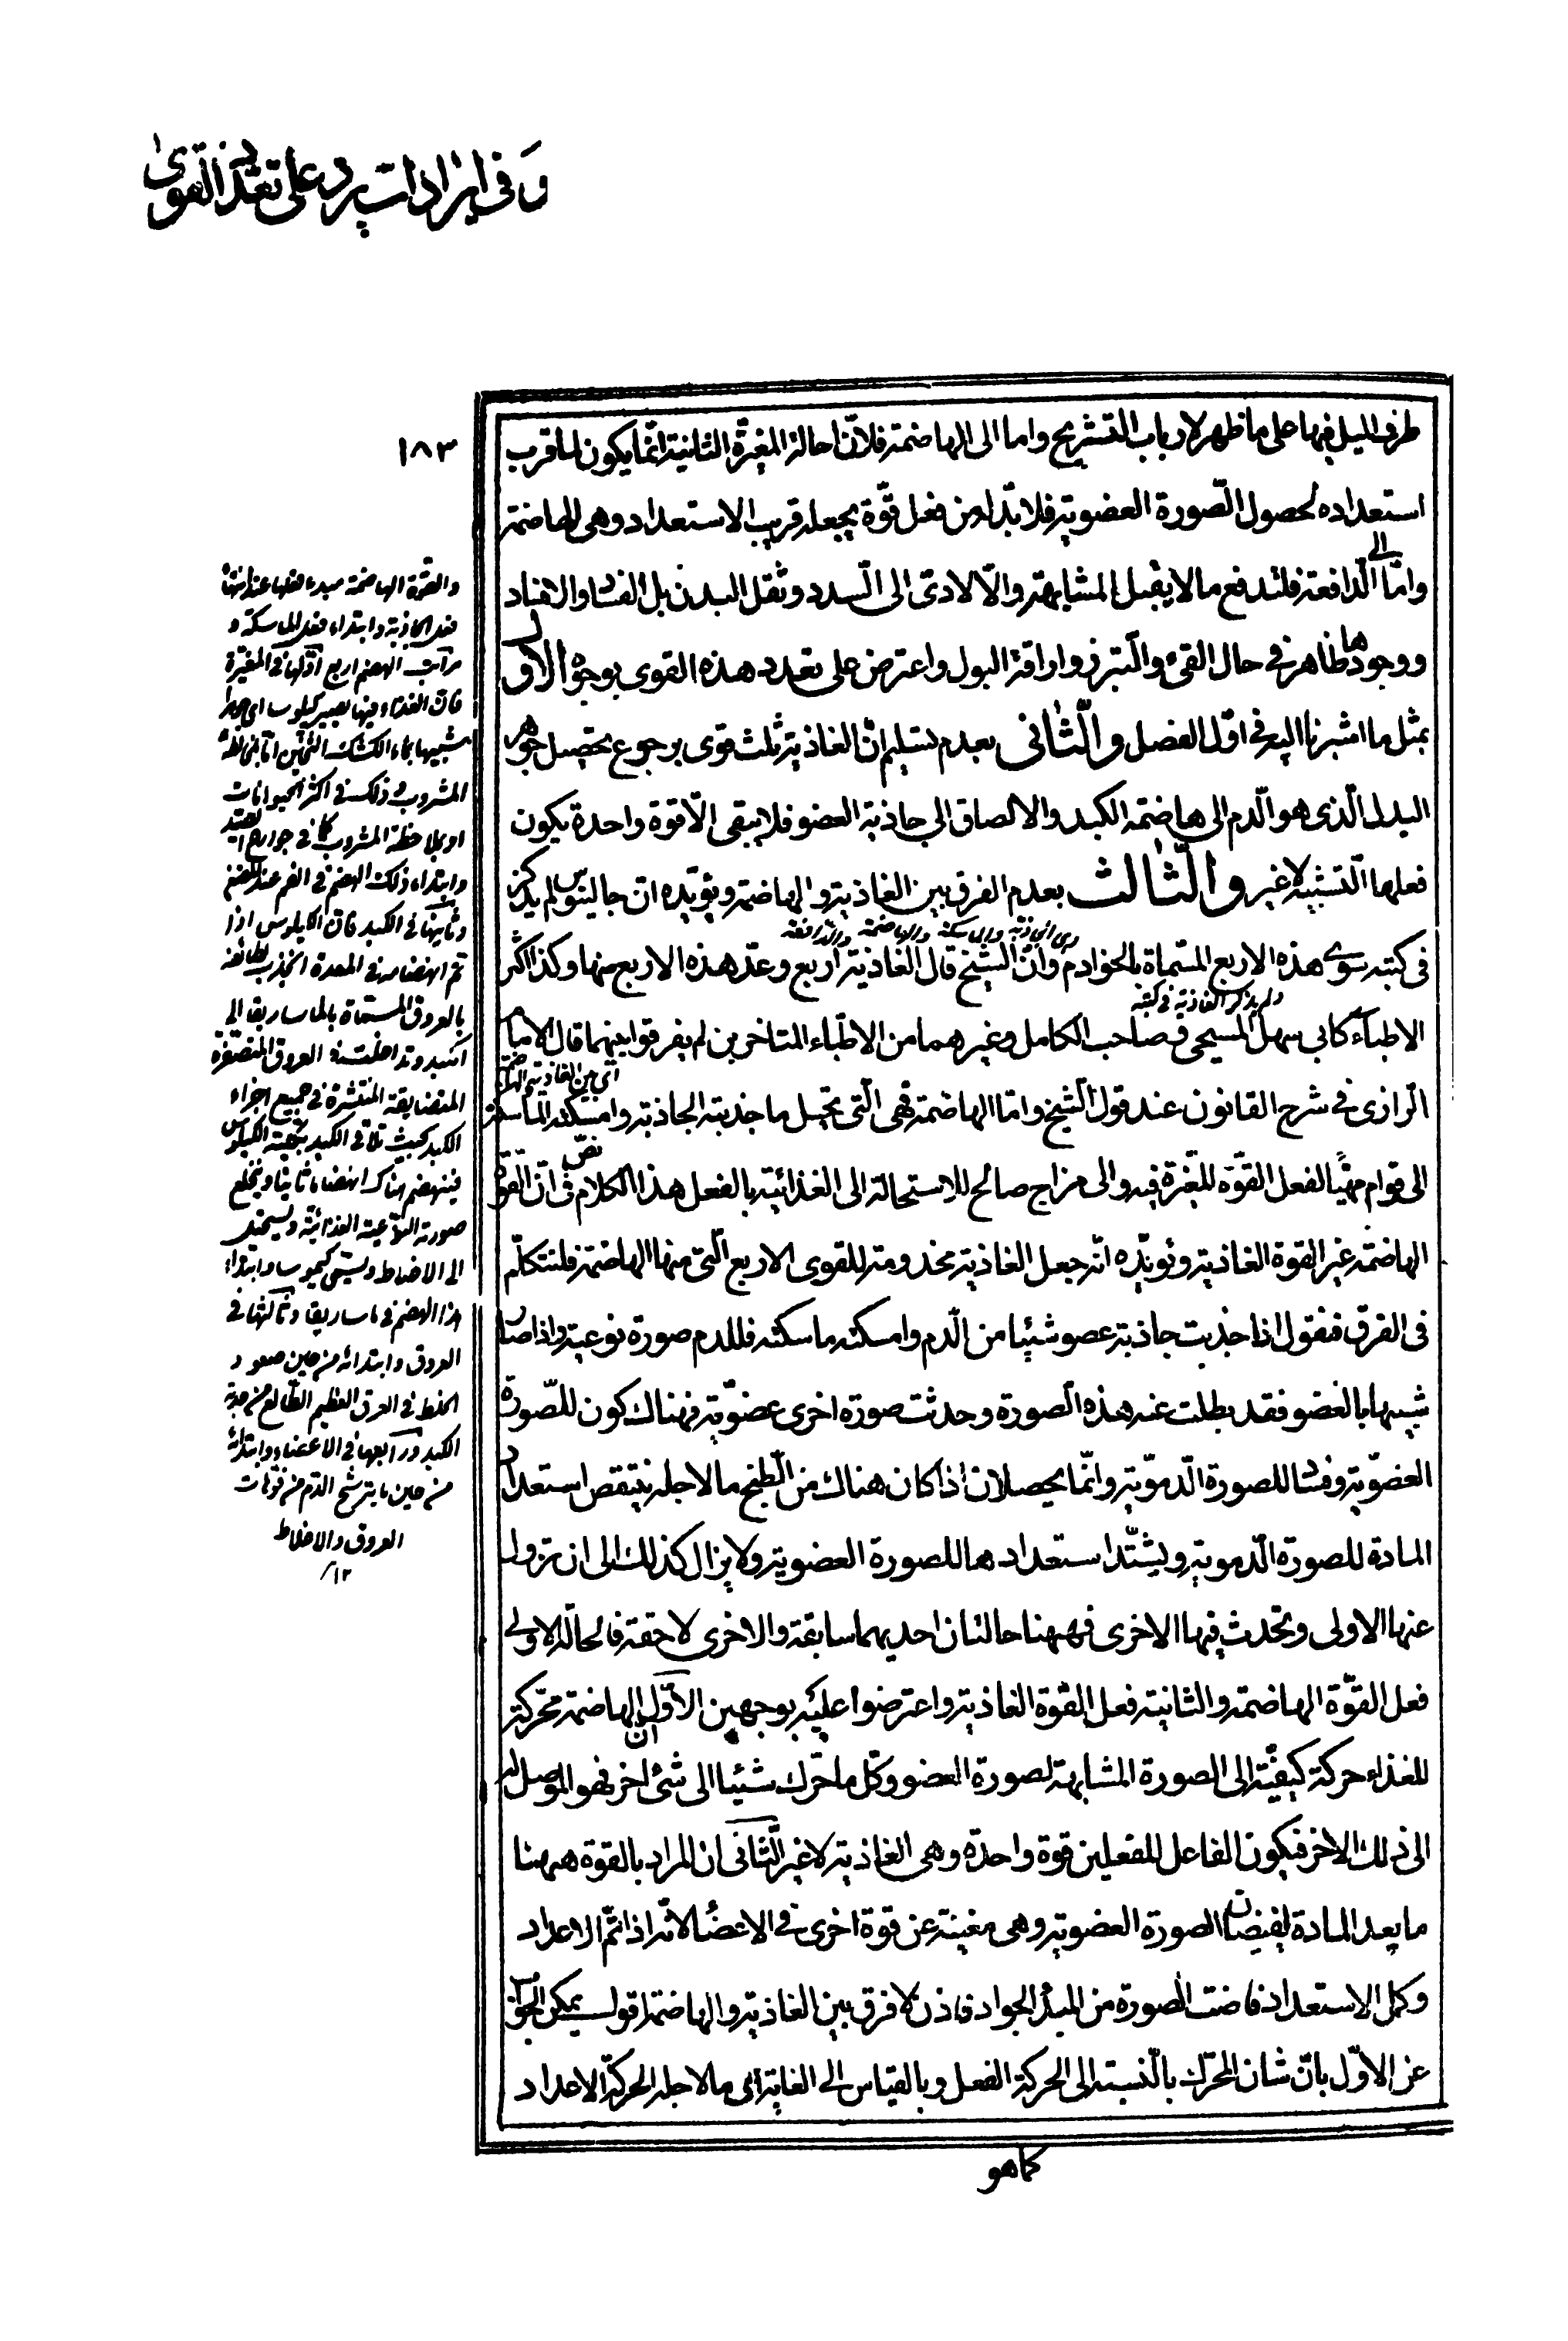 وفى ايرادات يرد على تعدد القوى
١٨٣
طرف الميل فيها على ما ظهر لارباب التشريح واما الى الهاضمة فلانّ احالة المغيّرة الثانية انّما يكون لما قرب
استعداده لحصول الصّورة العضوية فلا بدّ له من فعل قوّة يجعله قريب الاستعداد وهى الهاضمة
وامّا الى الدّافعة فلتدفع ما لا يقبل المشابهة والّا لادّى الى السّدد وثقل البدن بل الفساد والافساد
ووجودها ظاهر فى حال القىء والتبرّز واراقة البول واعترض على تعدد هذه القوى بوجوه الاول
بمثل ما اشرنا اليه فى اوّل الفصل والثّانى بعدم تسليم انّ الغاذية ثلث قوى برجوع تحصيل جوهر
البدل الّذى هو الدّم الى هاضمة الكبد والالصاق الى جاذبة العضو فلا يبقى الّا قوة واحدة يكون
فعلها التشبيه لا غير والثّالث بعدم الفرق بين الغاذية والهاضمة ويؤيّده ان جالينوس لم يذكر
هى الجاذبة والماسكة والهاضمة والدافعة
فى كتبه سوى هذه الاربع المسمّاة بالخوادم وانّ الشيخ قال الغاذية اربع وعدّ هذه الاربع منها وكذا اكثر
ولم يذكر الغاذية فى كتبه
الاطباء كابى سهل المسيحى وصاحب الكامل وغيرهما من الاطبّاء المتاخرين لم يفرقوا بينهما قال الامام
اى بين الغاذية والهاضمة
الرازى فى شرح القانون عند قول الشيخ وامّا الهاضمة فهى الّتى تحيل ما جذبته الجاذبة وامسكته الماسكة
الى قوام مهيّأ لفعل القوّة المغيّرة فيه والى مزاج صالح للاستحالة الى الغذائية بالفعل هذا الكلام نصّ فى انّ القوّة
الهاضمة غير القوة الغاذية ويؤيّده انّه جعل الغاذية مخدومة للقوى الاربع الّتى منها الهاضمة فلنتكلّم
فى الفرق فنقول اذا جذبت جاذبة عضو شيئا من الدّم وامسكته ماسكته فللدم صورة نوعية واذا صار
شبيها بالعضو فقد بطلت عنه هذه الصورة وحدثت صورة اخرى عضويّة فهناك كون للصّورة
العضويّة وفساد للصورة الدّمويّة وانّما يحصلان اذا كان هناك من الطبخ ما لاجله ينتقص استعداد
المادة للصورة الدّموية ويشتدّ استعدادها للصورة العضوية ولا يزال كذلك الى ان تزول
عنها الاولى وتحدث فيها الاخرى فههنا حالتان احديهما سابقة والاخرى لاحقة فالحالة الاولى
فعل القوّة الهاضمة والثانية فعل القوّة الغاذية واعترضوا عليه بوجهين الاوّل انّ الهاضمة محرّكة
للغذاء حركة كيفيّة الى الصورة المشابهة لصورة العضو وكل ما حرّك شيئا الى شئ اخر فهو الموصل له
الى ذلك الاخر فيكون الفاعل للفعلين قوة واحدة وهى الغاذية لا غير الثّانى ان المراد بالقوة ههنا
ما يعد المادة لفيضان الصورة العضوية وهى مغنية عن قوة اخرى فى الاعضاء لانّه اذا تمّ الاعداد
وكمل الاستعداد فاضت الصّورة من المبدأ الجواد فاذن لا فرق بين الغاذية والهاضمة اقول يمكن الجواب
عن الاوّل بانّ شان المحرّك بالنّسبة الى الحركة الفعل وبالقياس الى الغاية اى ما لاجله الحركة الاعداد
كما هو
والقوة الهاضمة مبدء فعلها عند انتهاء
فعل الجاذبة وابتداء فعل الماسكة و
مراتب الهضم اربع اوّلها فى المغيّرة
فان الغذاء فيها يصير كيلوسا اى جوهرا
شبيها بماء الكشك الثخين اما بمخالطة
المشروب وذلك فى اكثر الحيوانات
او بلا مخالطة المشروب كما فى جوارح الصيد
وابتداء ذلك الهضم فى الفم عند المضغ
وثانيها فى الكبد فان الكيلوس اذا
تمّ انهضامه فى المعدة انجذب لطائفه
بالعروق المسمّاة بالماساريقا الى
الكبد وتداخلت فى العروق المتصغّرة
المتضايقة المنتشرة فى جميع اجزاء
الكبد بحيث تلاقى الكبد بكليّته الكيلوس
فينهضم هناك انهضاما ثانيا ويخلع
صورته النوعية الغذائية ويستحيل
الى الاخلاط ويسمّى كيموسا وابتداء
هذا الهضم فى ماساريقا وثالثها فى
العروق وابتدائه من حين صعود
الخلط فى العرق العظيم الطالع من حدبة
الكبد ورابعها فى الاعضاء وابتدائه
من حين ما يترشح الدّم من فوهات
العروق والاخلاط
١٢